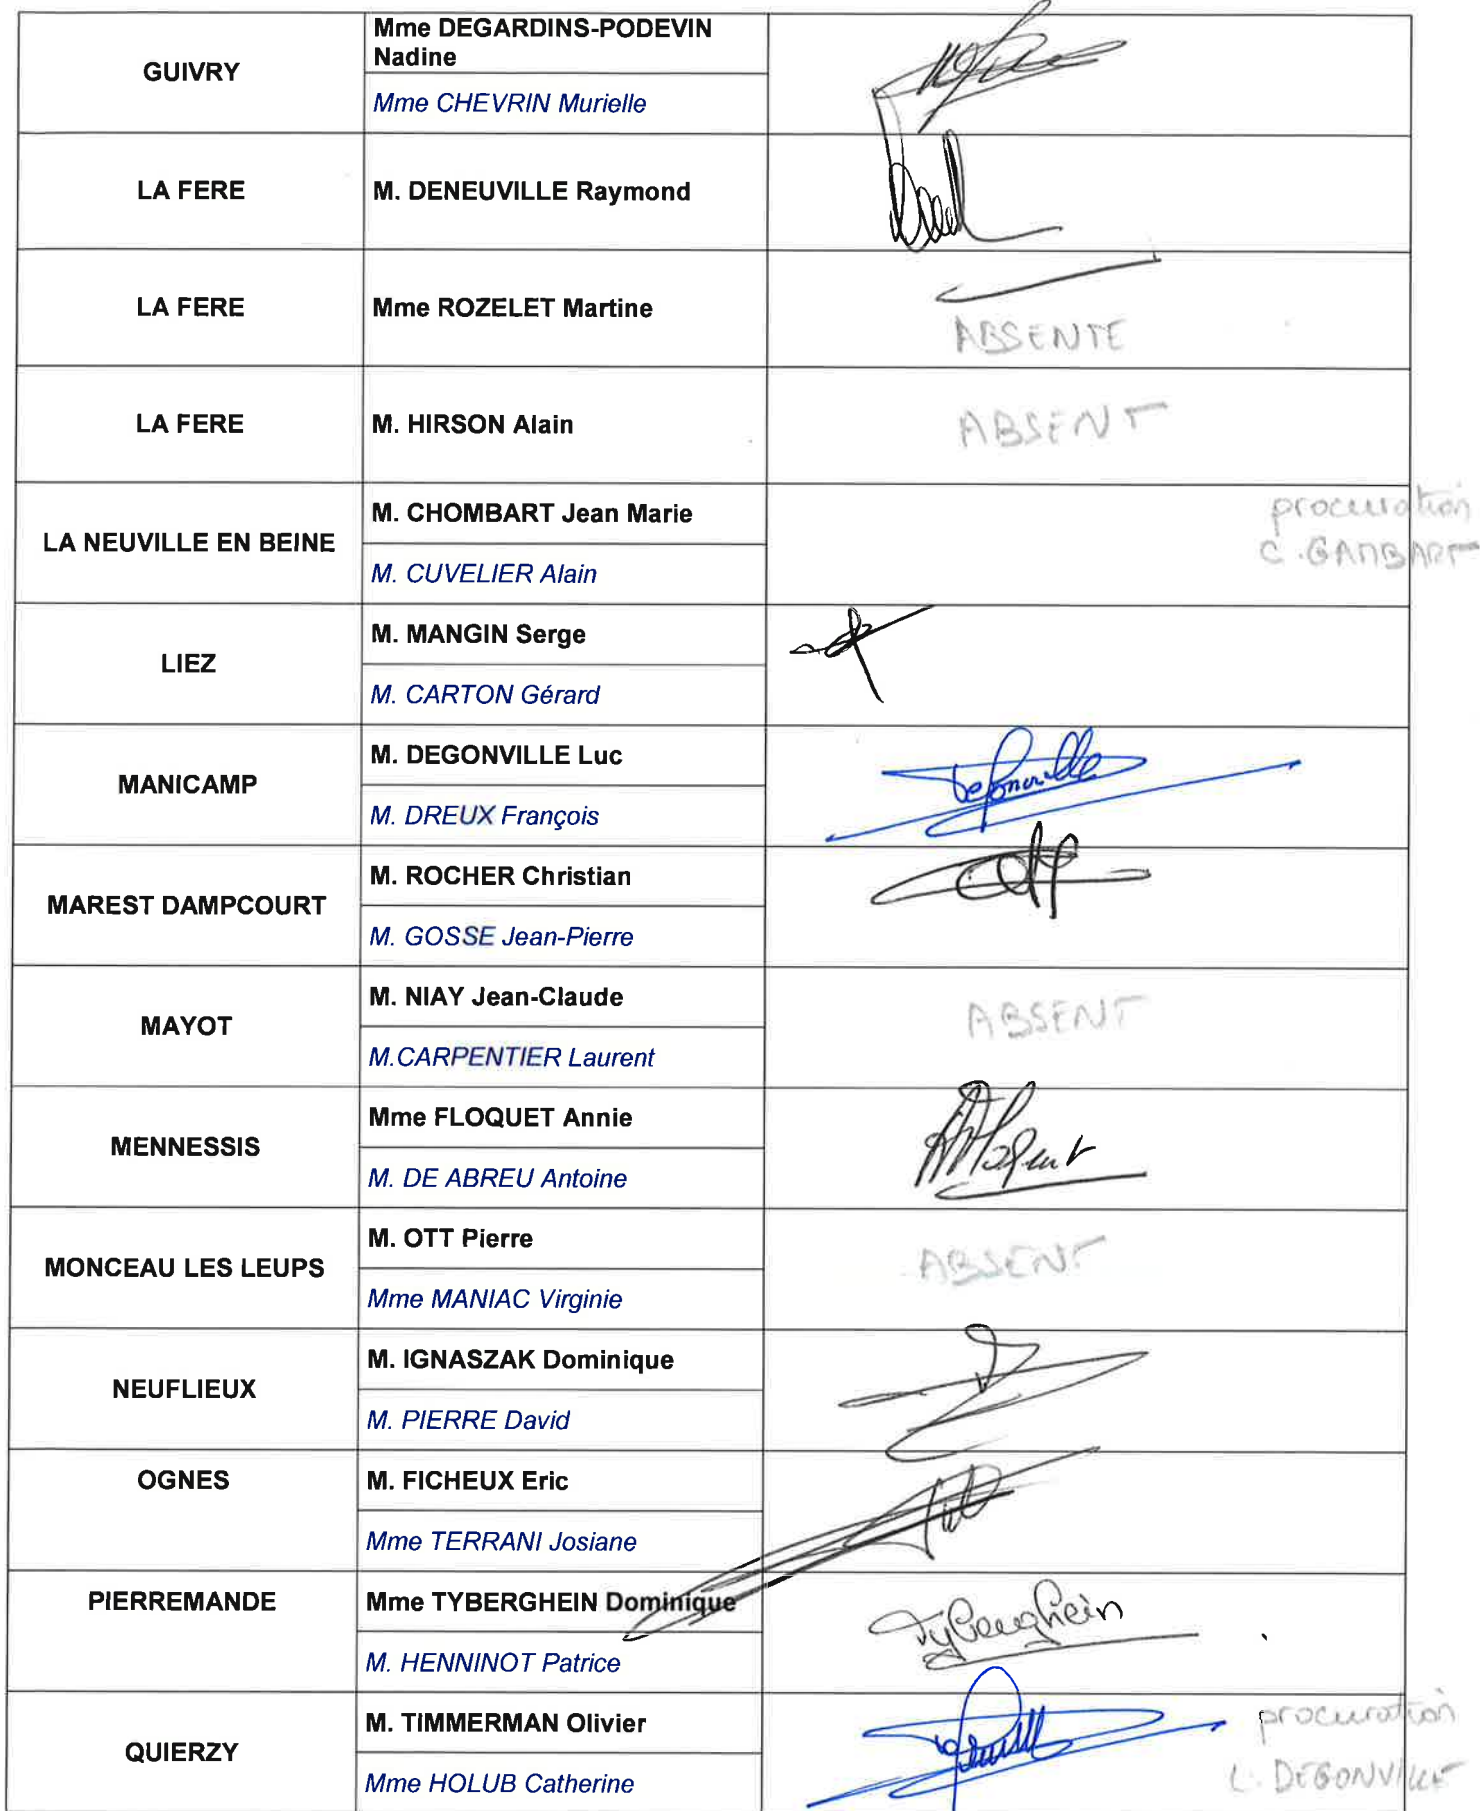 GUIVRY
Mme DEGARDINS-PODEVIN
Nadine
Mme CHEVRIN Murielle
LA FERE
M. DENEUVILLE Raymond
LA FERE
Mme ROZELET Martine
ABSENTE
LA FERE
M. HIRSON Alain
ABSENT
LA NEUVILLE EN BEINE
M. CHOMBART Jean Marie
M. CUVELIER Alain
procuration
C. GAMBART
LIEZ
M. MANGIN Serge
M. CARTON Gérard
MANICAMP
M. DEGONVILLE Luc
M. DREUX François
Degonville
MAREST DAMPCOURT
M. ROCHER Christian
M. GOSSE Jean-Pierre
MAYOT
M. NIAY Jean-Claude
M.CARPENTIER Laurent
ABSENT
MENNESSIS
Mme FLOQUET Annie
M. DE ABREU Antoine
MONCEAU LES LEUPS
M. OTT Pierre
Mme MANIAC Virginie
ABSENT
NEUFLIEUX
M. IGNASZAK Dominique
M. PIERRE David
OGNES
M. FICHEUX Eric
Mme TERRANI Josiane
PIERREMANDE
Mme TYBERGHEIN Dominique
M. HENNINOT Patrice
Tyberghein
QUIERZY
M. TIMMERMAN Olivier
Mme HOLUB Catherine
procuration
L. DEGONVILLE